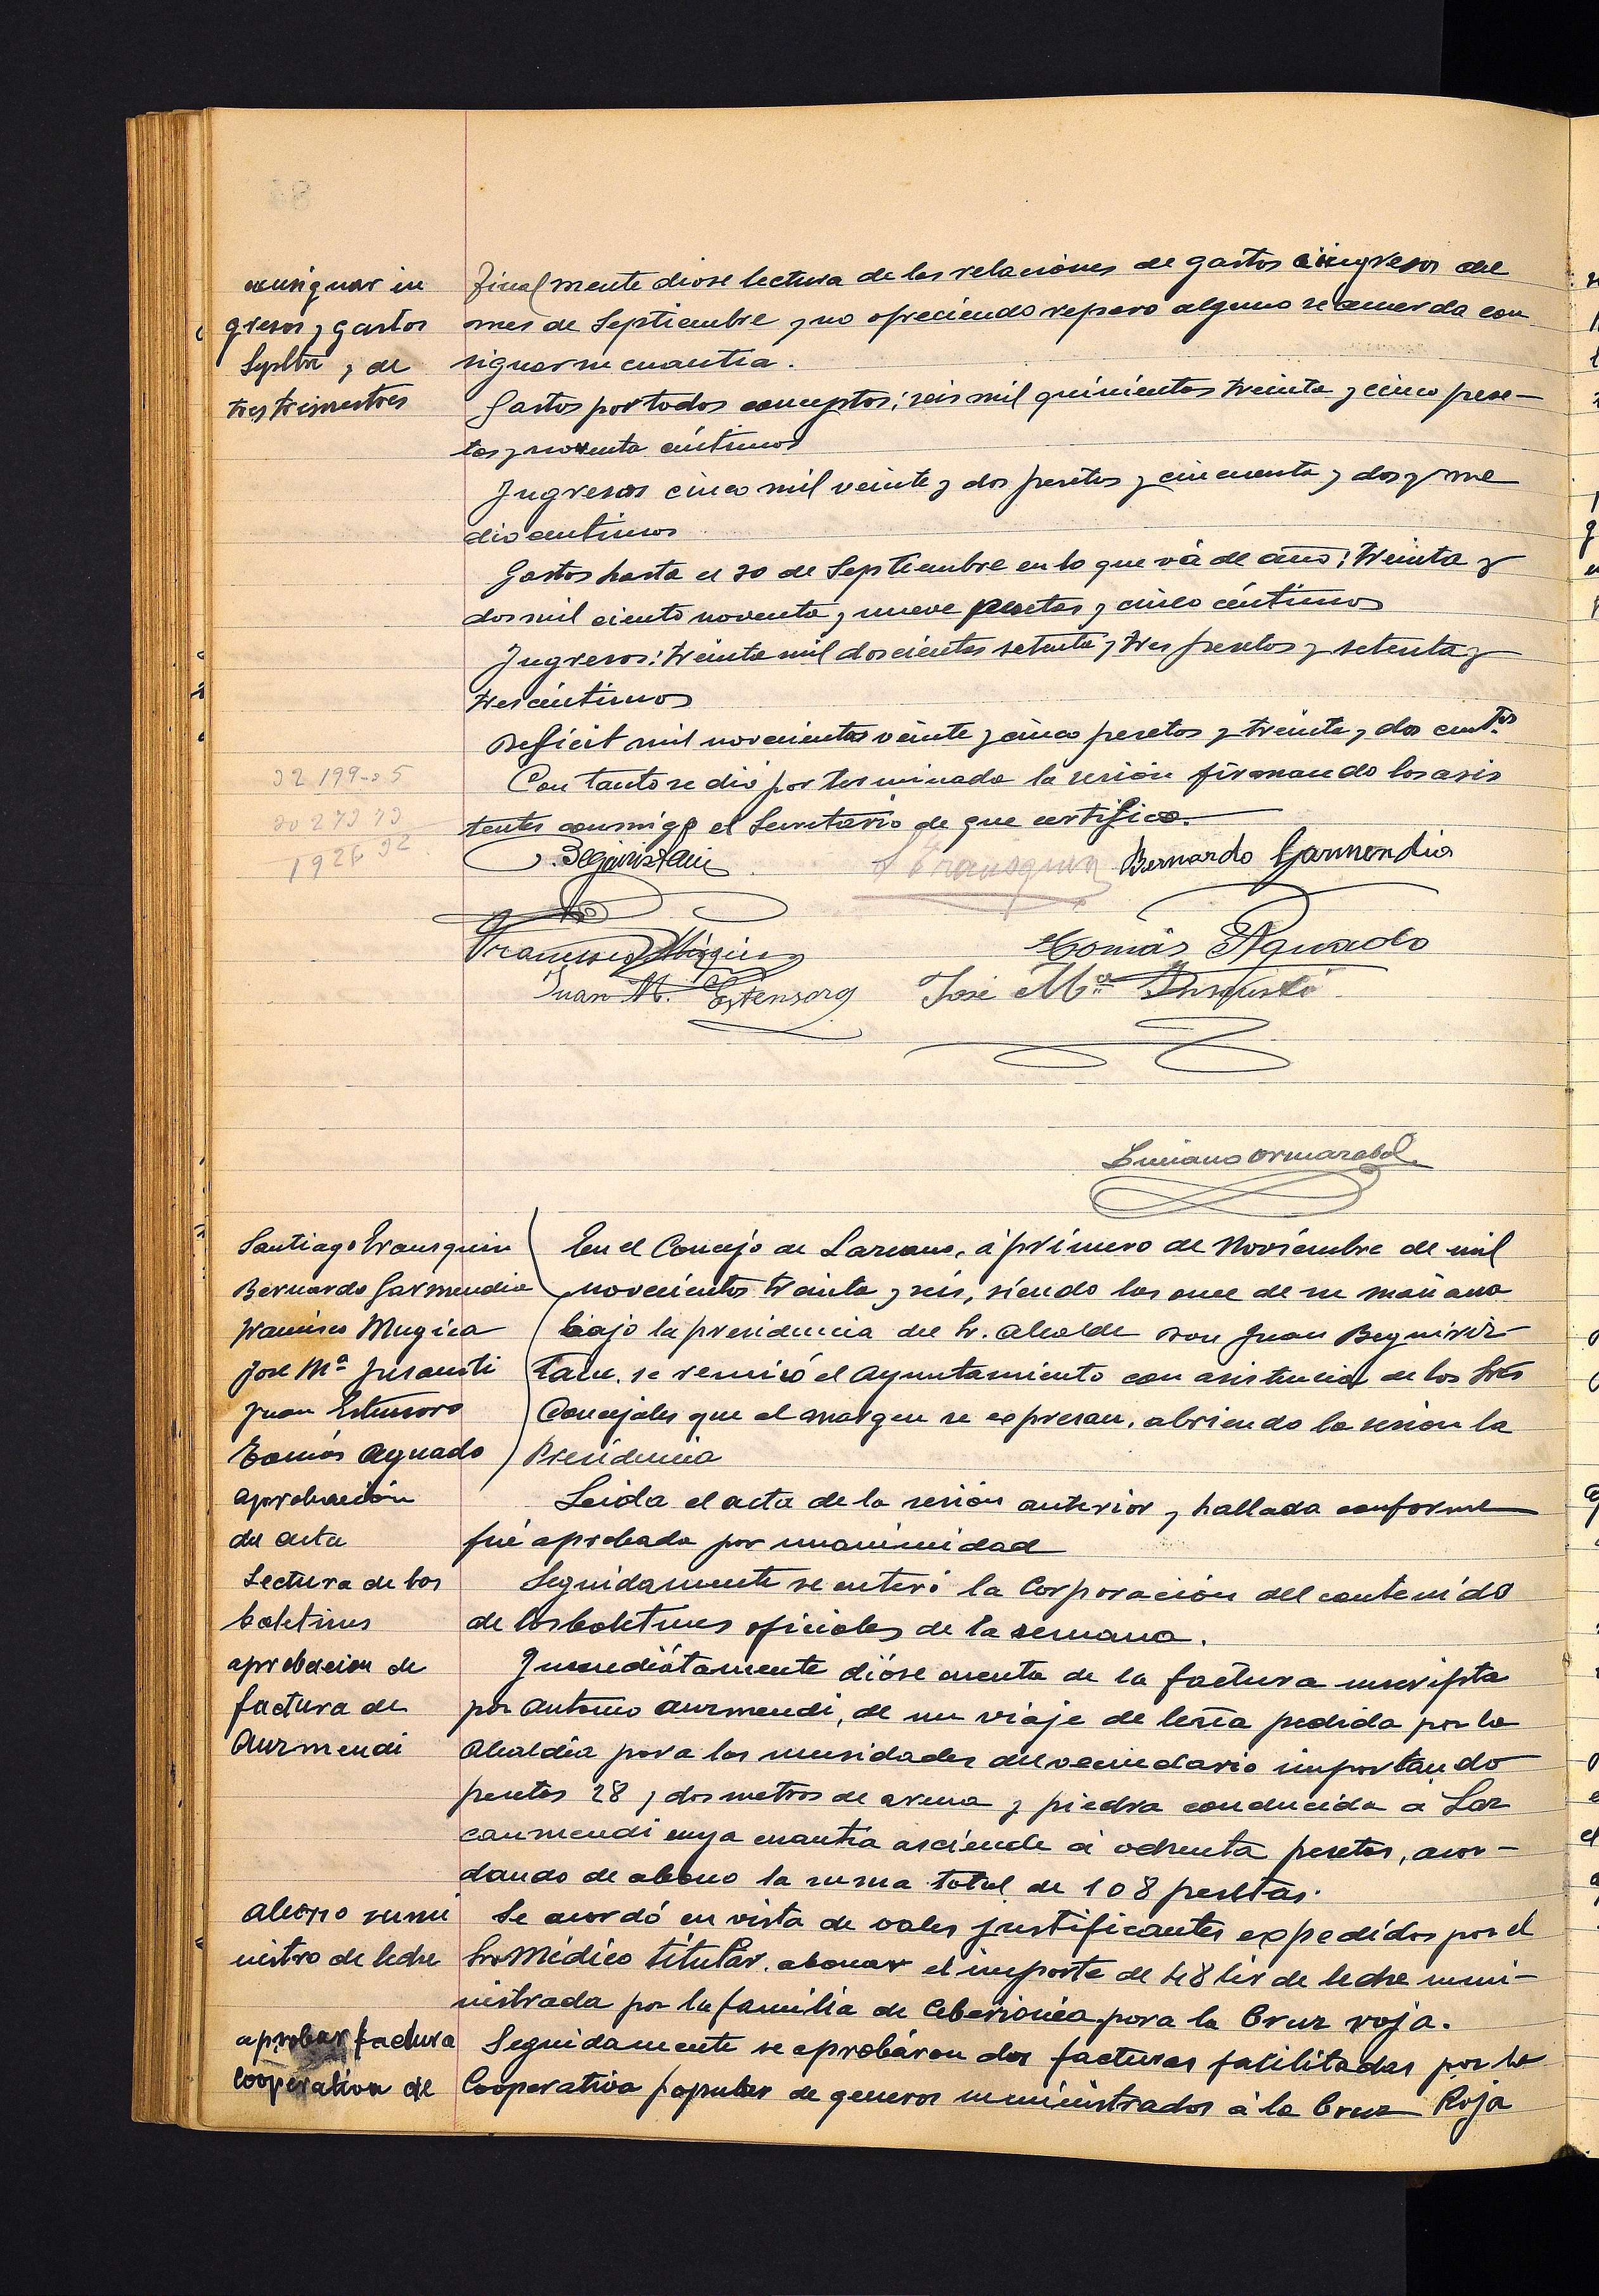 consignar in
gresos y gastos
Sepbre y de
tres trimestres
finalmente diose lectura de las relaciones de gastos é ingresos del
mes de Septiembre y no ofreciendo reparo alguno se acuerda con
signar su cuantia.
Gastos por todos conceptos: seis mil quinientas treinta y cinco pese-
tas y noventa céntimos
Ingresos cinco mil veinte y dos pesetas y cincuenta y dos y me
dio centimos
Gastos hasta el 30 de Septiembre en lo que vá de año: treinta y
dos mil ciento noventa y nueve pesetas y cinco céntimos
Ingresos: treinta mil doscientas setenta y tres pesetas y setenta y
tres céntimos
Deficit mil novecientas veinte y cinco pesetas y treinta y dos cent.os
Con tanto se dió por terminada la sesión firmando los asis
tentes conmigo el Secretario de que certifico.
32 199-05
30 273 73
1925 32
J. Beguiristain
S Iransquin
Bernardo Garmendia
Francisco Múgica
Tomás Aguado
Juan M. Estensoro
José Mª Insausti
Luciano Ormazabal
Santiago Iransquin
Bernardo Garmendia
Francisco Mugica
José Mª Insausti
Juan Estensoro
Tomás Aguado
En el Concejo de Lazcano, á primero de Noviembre de mil
novecientos treinta y seis, siendo las once de su mañana
bajo la presidencia del Sr. Alcalde Don Juan Beguiris-
tain, se reunió el Ayuntamiento con asistencia de los Sres
Concejales que al margen se expresan, abriendo la sesion la
Presidencia
aprobación
del acta
Leida el acta de la sesion anterior y hallada conforme
fué aprobada por unanimidad
Lectura de los
boletines
Seguidamente se enteró la Corporación del contenido
de los boletines oficiales de la semana.
aprobacion de
factura de
Aurmendi
Inmediátamente dióse cuenta de la factura suscripta
por Antonio Aurmendi, de un viaje de leña pedida por la
Alcaldia para las necesidades del vecindario importando
pesetas 28 y dos metros de arena y piedra conducida a Laz
canmendi cuya cuantia asciende á ochenta pesetas, acor-
dando de abono la suma total de 108 pesetas.
abono sumi
nistro de leche
Se acordó en vista de vales justificantes expedidos por el
Sr Médico titular, abonar el importe de 48 lir de leche sumi-
nistrada por la familia de para la Cruz roja.
aprobar factura
cooperativa de
Seguidamente se aprobáron dos facturas facilitadas por la
Cooperativa popular de generos suministrados á la Cruz Roja